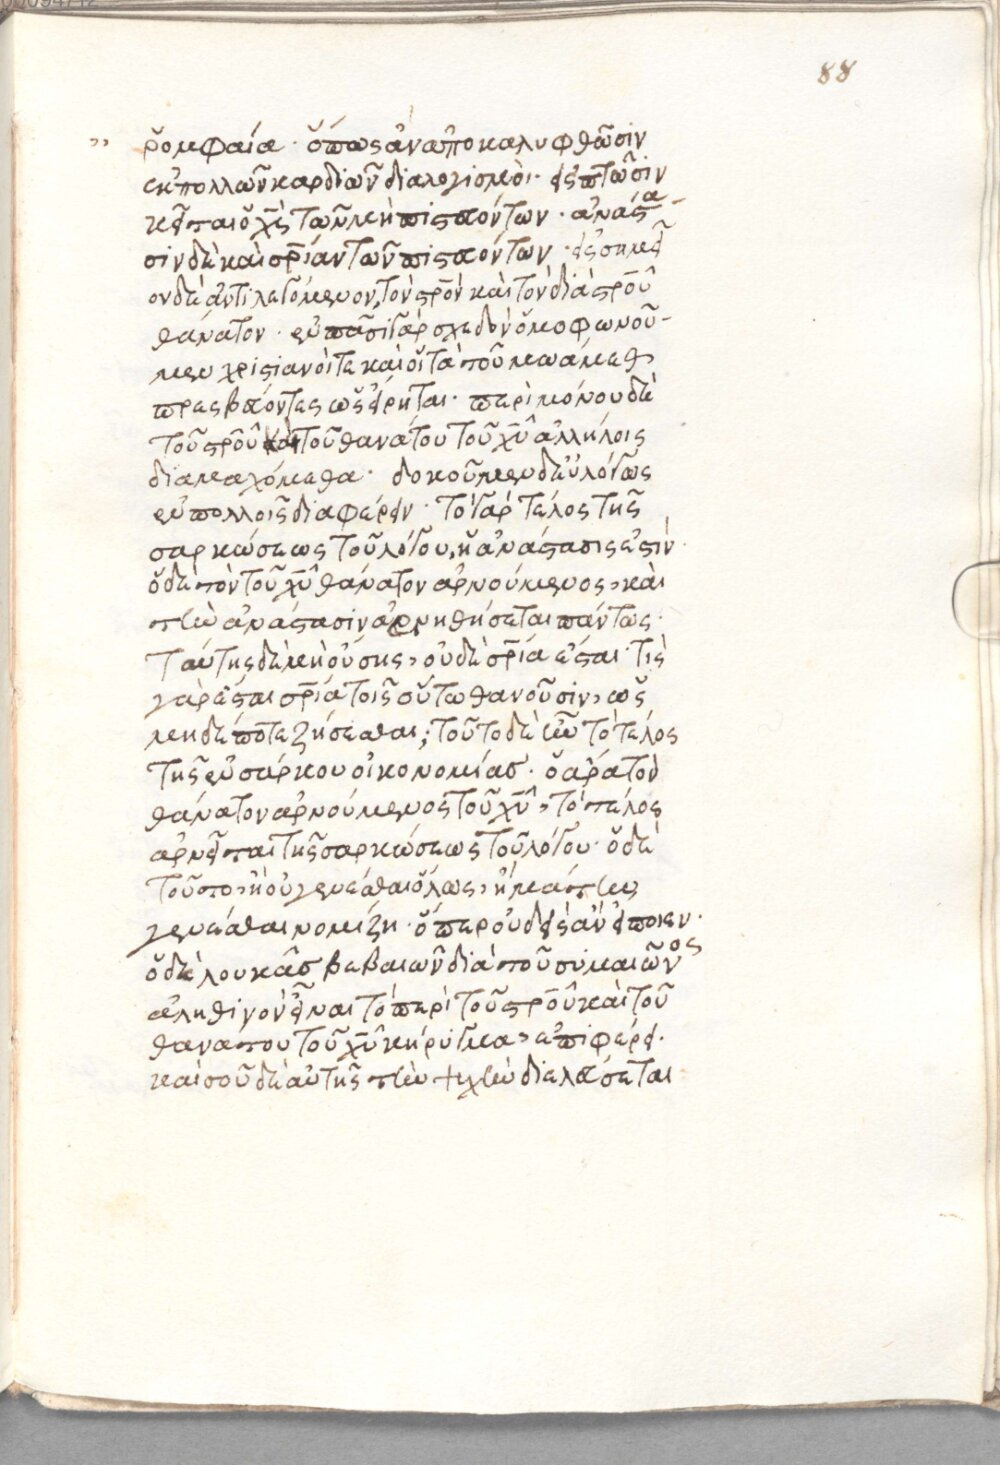 88
ῥομφαία · ὅπως ἀναποκαλυφθῶσιν
ἐκ πολλῶν καρδιῶν διαλογισμοί · εἰς πτῶσιν
κεῖται ὁ χ̅ς̅ τῶν μὴ πιστευόντων · ἀνάστα-
σιν δὲ καὶ σ̅ρ̅ίαν τῶν πιστευόντων · εἰς σημεῖ
ον δὲ ἀντιλεγόμενον, τὸν σ̅ρ̅ὸν καὶ τὸν διὰ σ̅ρ̅οῦ
θάνατον · ἐν πᾶσι γὰρ σχεδὸν ὁμοφωνοῦ-
μεν χριστιανοί τε καὶ οἱ τὰ τοῦ μωάμεθ
πρεσβεύοντες ὡς εἴρηται · περὶ μόνου δὲ
τοῦ σ̅ρ̅οῦ καὶ τοῦ θανάτου τοῦ χ̅υ̅ ἀλλήλοις
διαμαχόμεθα · δοκοῦμεν δὲ εὐλόγως
ἐν πολλοῖς διαφέρειν · τὸ γὰρ τέλος τῆς
σαρκώσεως τοῦ λόγου, ἡ ἀνάστασις ἐστίν ·
ὁ δὲ τὸν τοῦ χ̅υ̅ θάνατον ἀρνούμενος, καὶ
τὴν ἀνάστασιν ἀρνηθήσεται πάντως ·
ταύτης δὲ μὴ οὔσης, οὐδὲ σ̅ρ̅ία ἔσται · τίς
γὰρ ἔσται σ̅ρ̅ία τοῖς οὕτω θανοῦσιν, ὡς
μηδέποτε ζήσεσθαι; τοῦτο δὲ ἦν τὸ τέλος
τῆς ἐνσάρκου οἰκονομίας · ὁ ἄρα τὸν
θάνατον ἀρνούμενος τοῦ χ̅υ̅, τὸ τέλος
ἀρνεῖται τῆς σαρκώσεως τοῦ λόγου · ὁ δὲ
τοῦτο, ἢ οὐ γενέσθαι ὅλως, ἢ μάτην
γενέσθαι νομίζει · ὅπερ οὐδεὶς ἂν εἴποιεν ·
ὁ δὲ λουκᾶς βεβαιῶν διὰ τοῦ συμαιῶνος
ἀληθινὸν εἶναι τὸ περὶ τοῦ σ̅ρ̅οῦ καὶ τοῦ
θανάτου τοῦ χ̅υ̅ κήρυγμα, ἐπιφέρει ·
καὶ σοῦ δὲ αὐτῆς τὴν ψυχὴν διελεύσεται